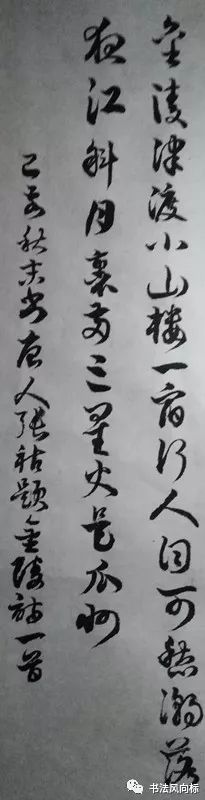 金陵津渡小山楼一宿行人自可愁潮落
夜江斜月里两三星火是瓜州
己亥秋末书唐人张祜题金陵诗一首
书法风向标